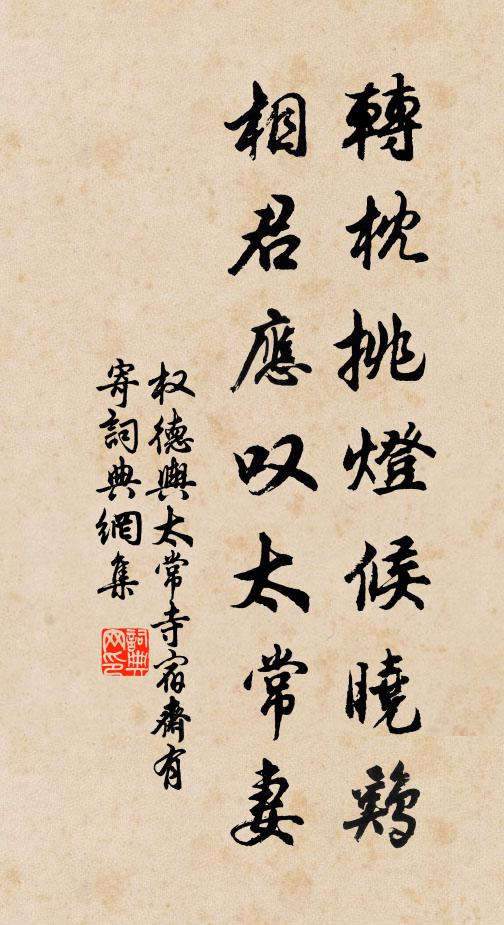 轉枕挑燈候曉鷄
相君應叹太常妻
权德輿太常寺宿齋有
寄詞典網集
詞典
网印